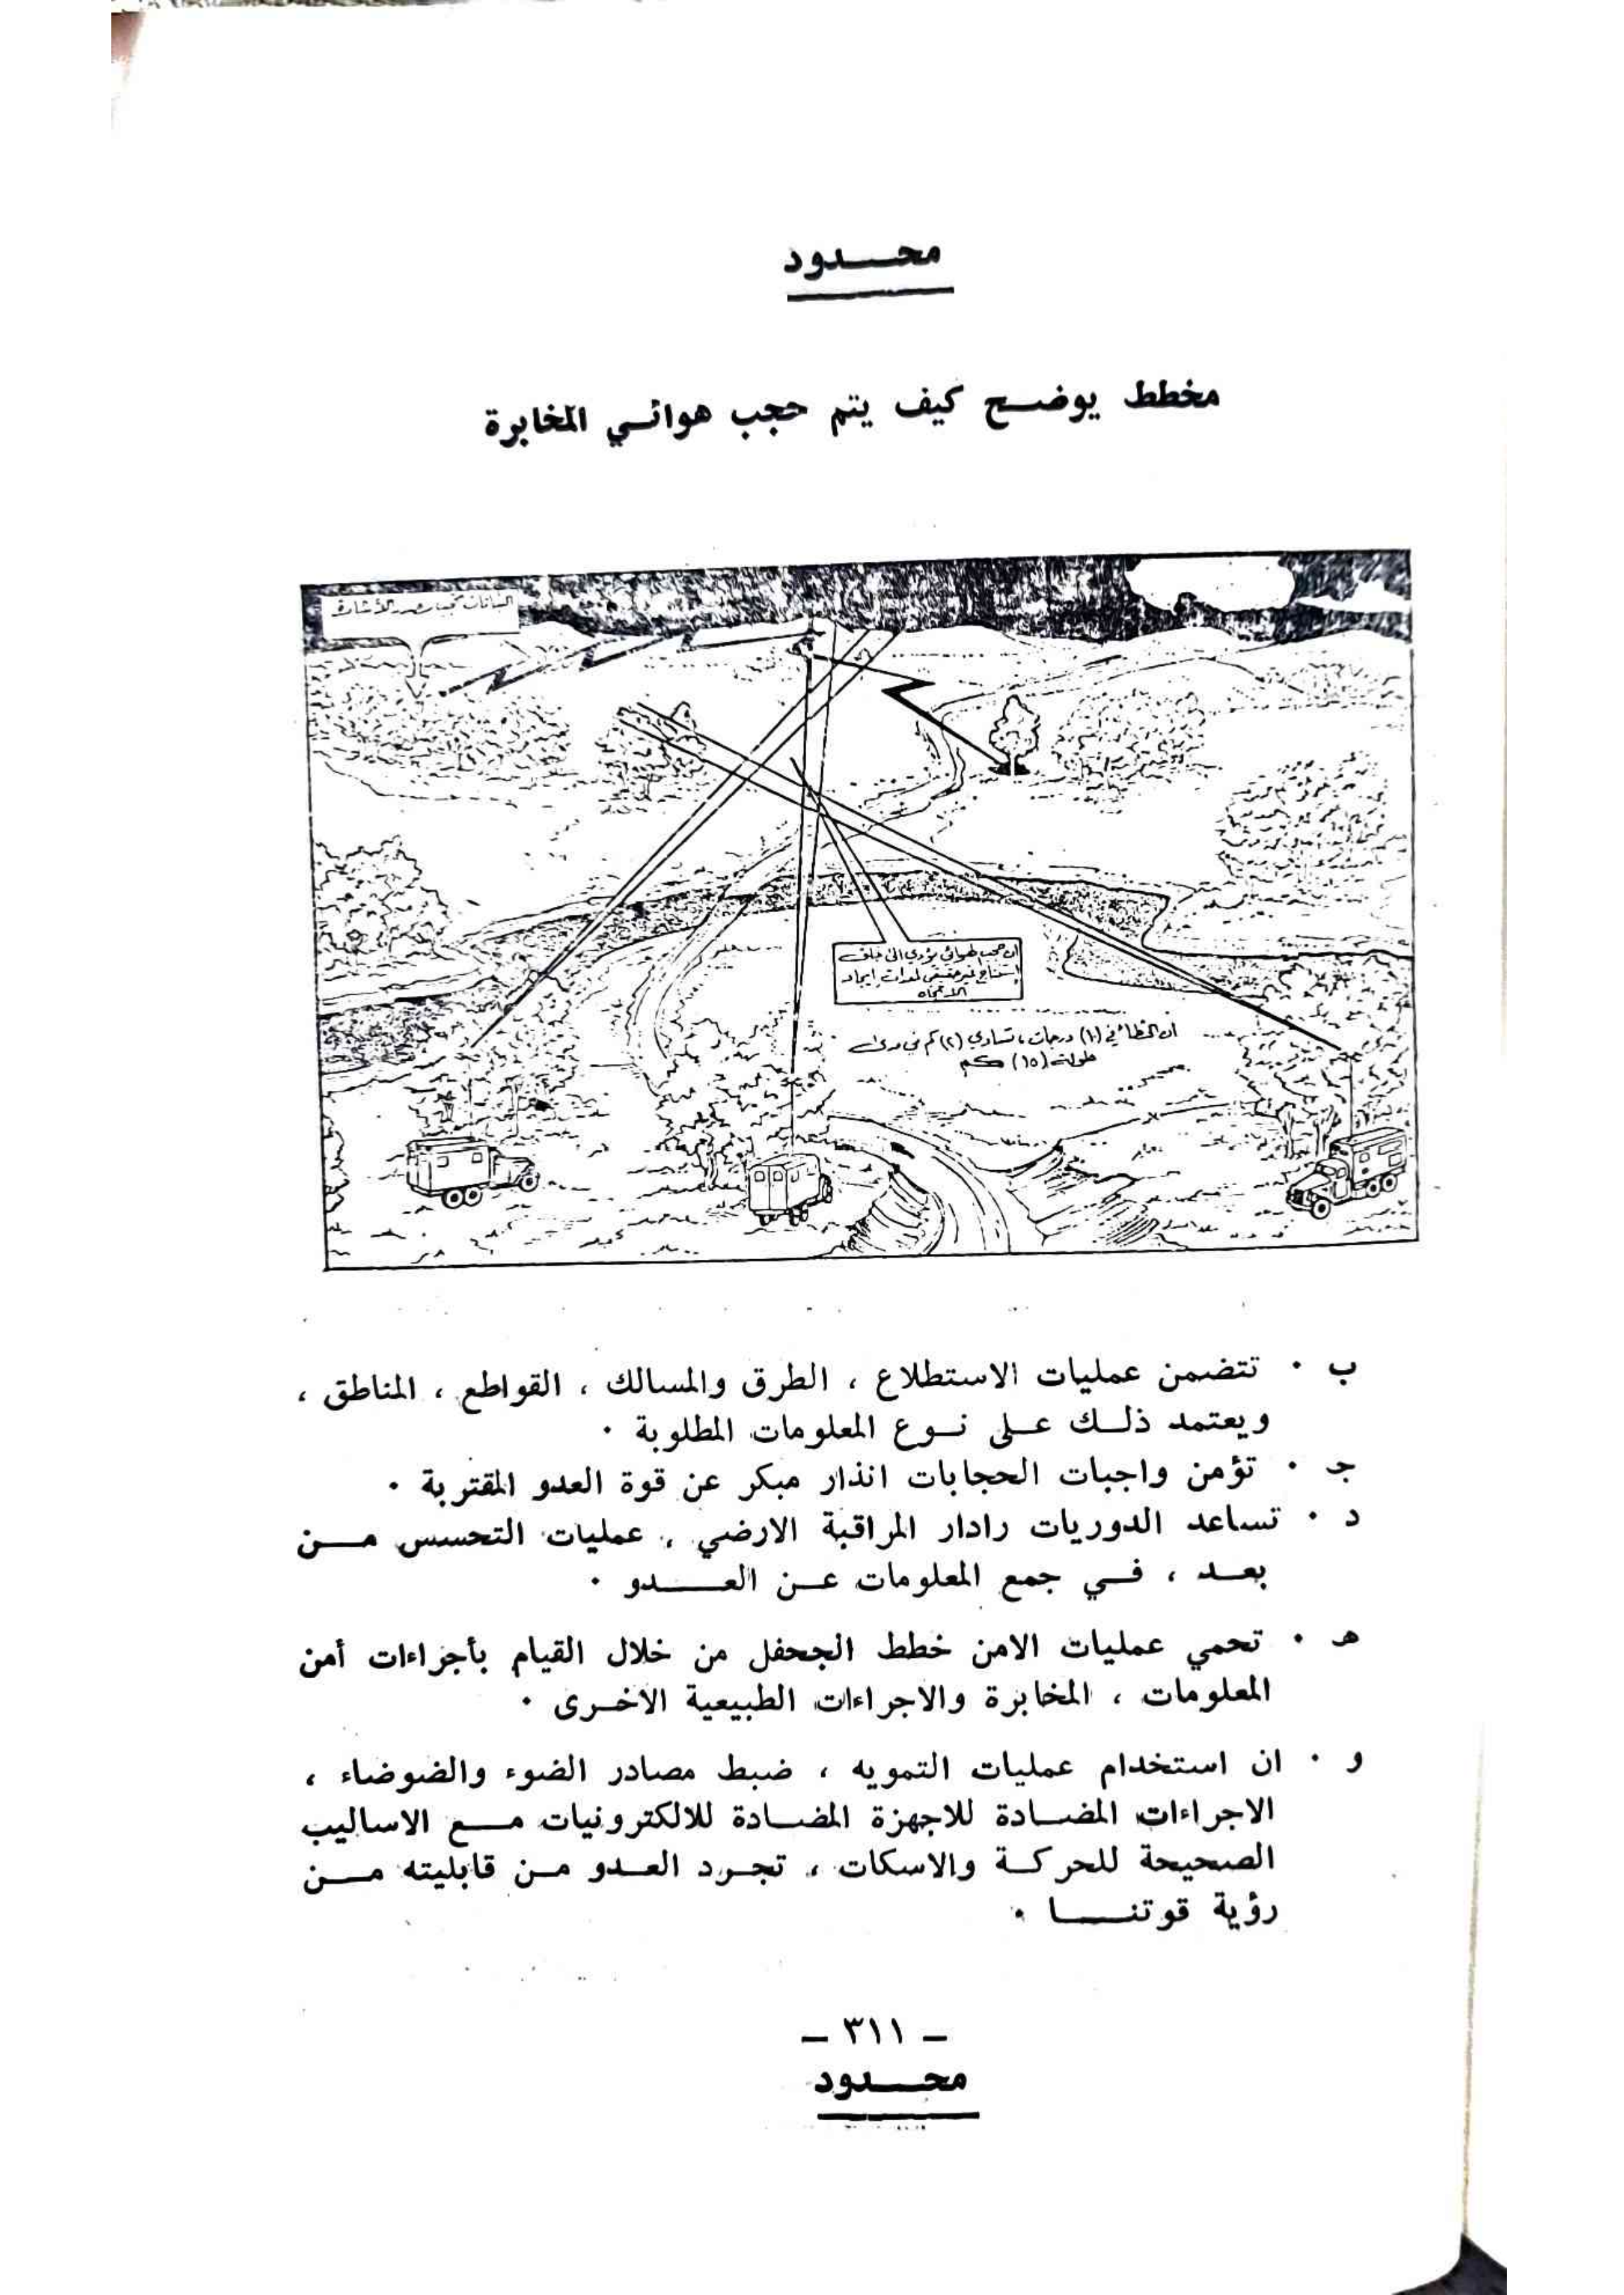 محـــدود
مخطط يوضـح كيف يتم حجب هوائـي المخابرة
النباتات تحجب مصدر الأشارة
ان حجب هوائي يؤدي الى خلق
إستنتاج غير حقيقي لمعدات إيجاد
الاتجاه
ان الخطأ في (١٠) درجات، تساوي (٢) كم في مدى
طوله (١٥) كم
ب ٠ تتضمن عمليات الاستطلاع ، الطرق والمسالك ، القواطع ، المناطق ،
ويعتمد ذلـك علـى نـوع المعلومات المطلوبة ٠
جـ ٠ تؤمن واجبات الحجابات انذار مبكر عن قوة العدو المقتربة ٠
د ٠ تساعد الدوريات رادار المراقبة الارضي ، عمليات التحسس مـن
بعـد ، فـي جمع المعلومات عـن العــدو ٠
هـ ٠ تحمي عمليات الامن خطط الجحفل من خلال القيام بأجراءات أمن
المعلومات ، المخابرة والاجراءات الطبيعية الاخـرى ٠
و ٠ ان استخدام عمليات التمويه ، ضبط مصادر الضوء والضوضاء ،
الاجراءات المضـادة للاجهزة المضـادة للالكترونيات مـع الاساليب
الصحيحة للحركـة والاسكات ، تجـرد العـدو مـن قابليته مـن
رؤية قوتنــا ٠
– ٣١١ –
محـــدود